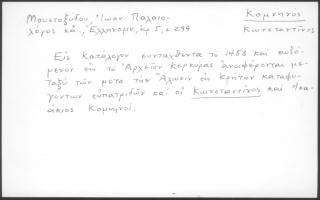 Μουστοξύδου, Ἰωαν. Παλαιο-
λόγος κἄ., Ἑλληνομν., ἀρ. 5, σ. 294
Κομνηνος
Κωνσταντῖνος
Εἰς κατάλογον συνταχθέντα τὸ 1453 καὶ σωζό-
μενον εἰς τὸ Ἀρχεῖον Κερκύρας ἀναφέρονται με-
ταξὺ τῶν μετὰ τὴν Ἅλωσιν ἐν Κρήτῃ καταφυ-
γόντων εὐπατριδῶν καὶ οἱ Κωνσταντῖνος καὶ Ἰσα-
άκιος Κομνηνοί.